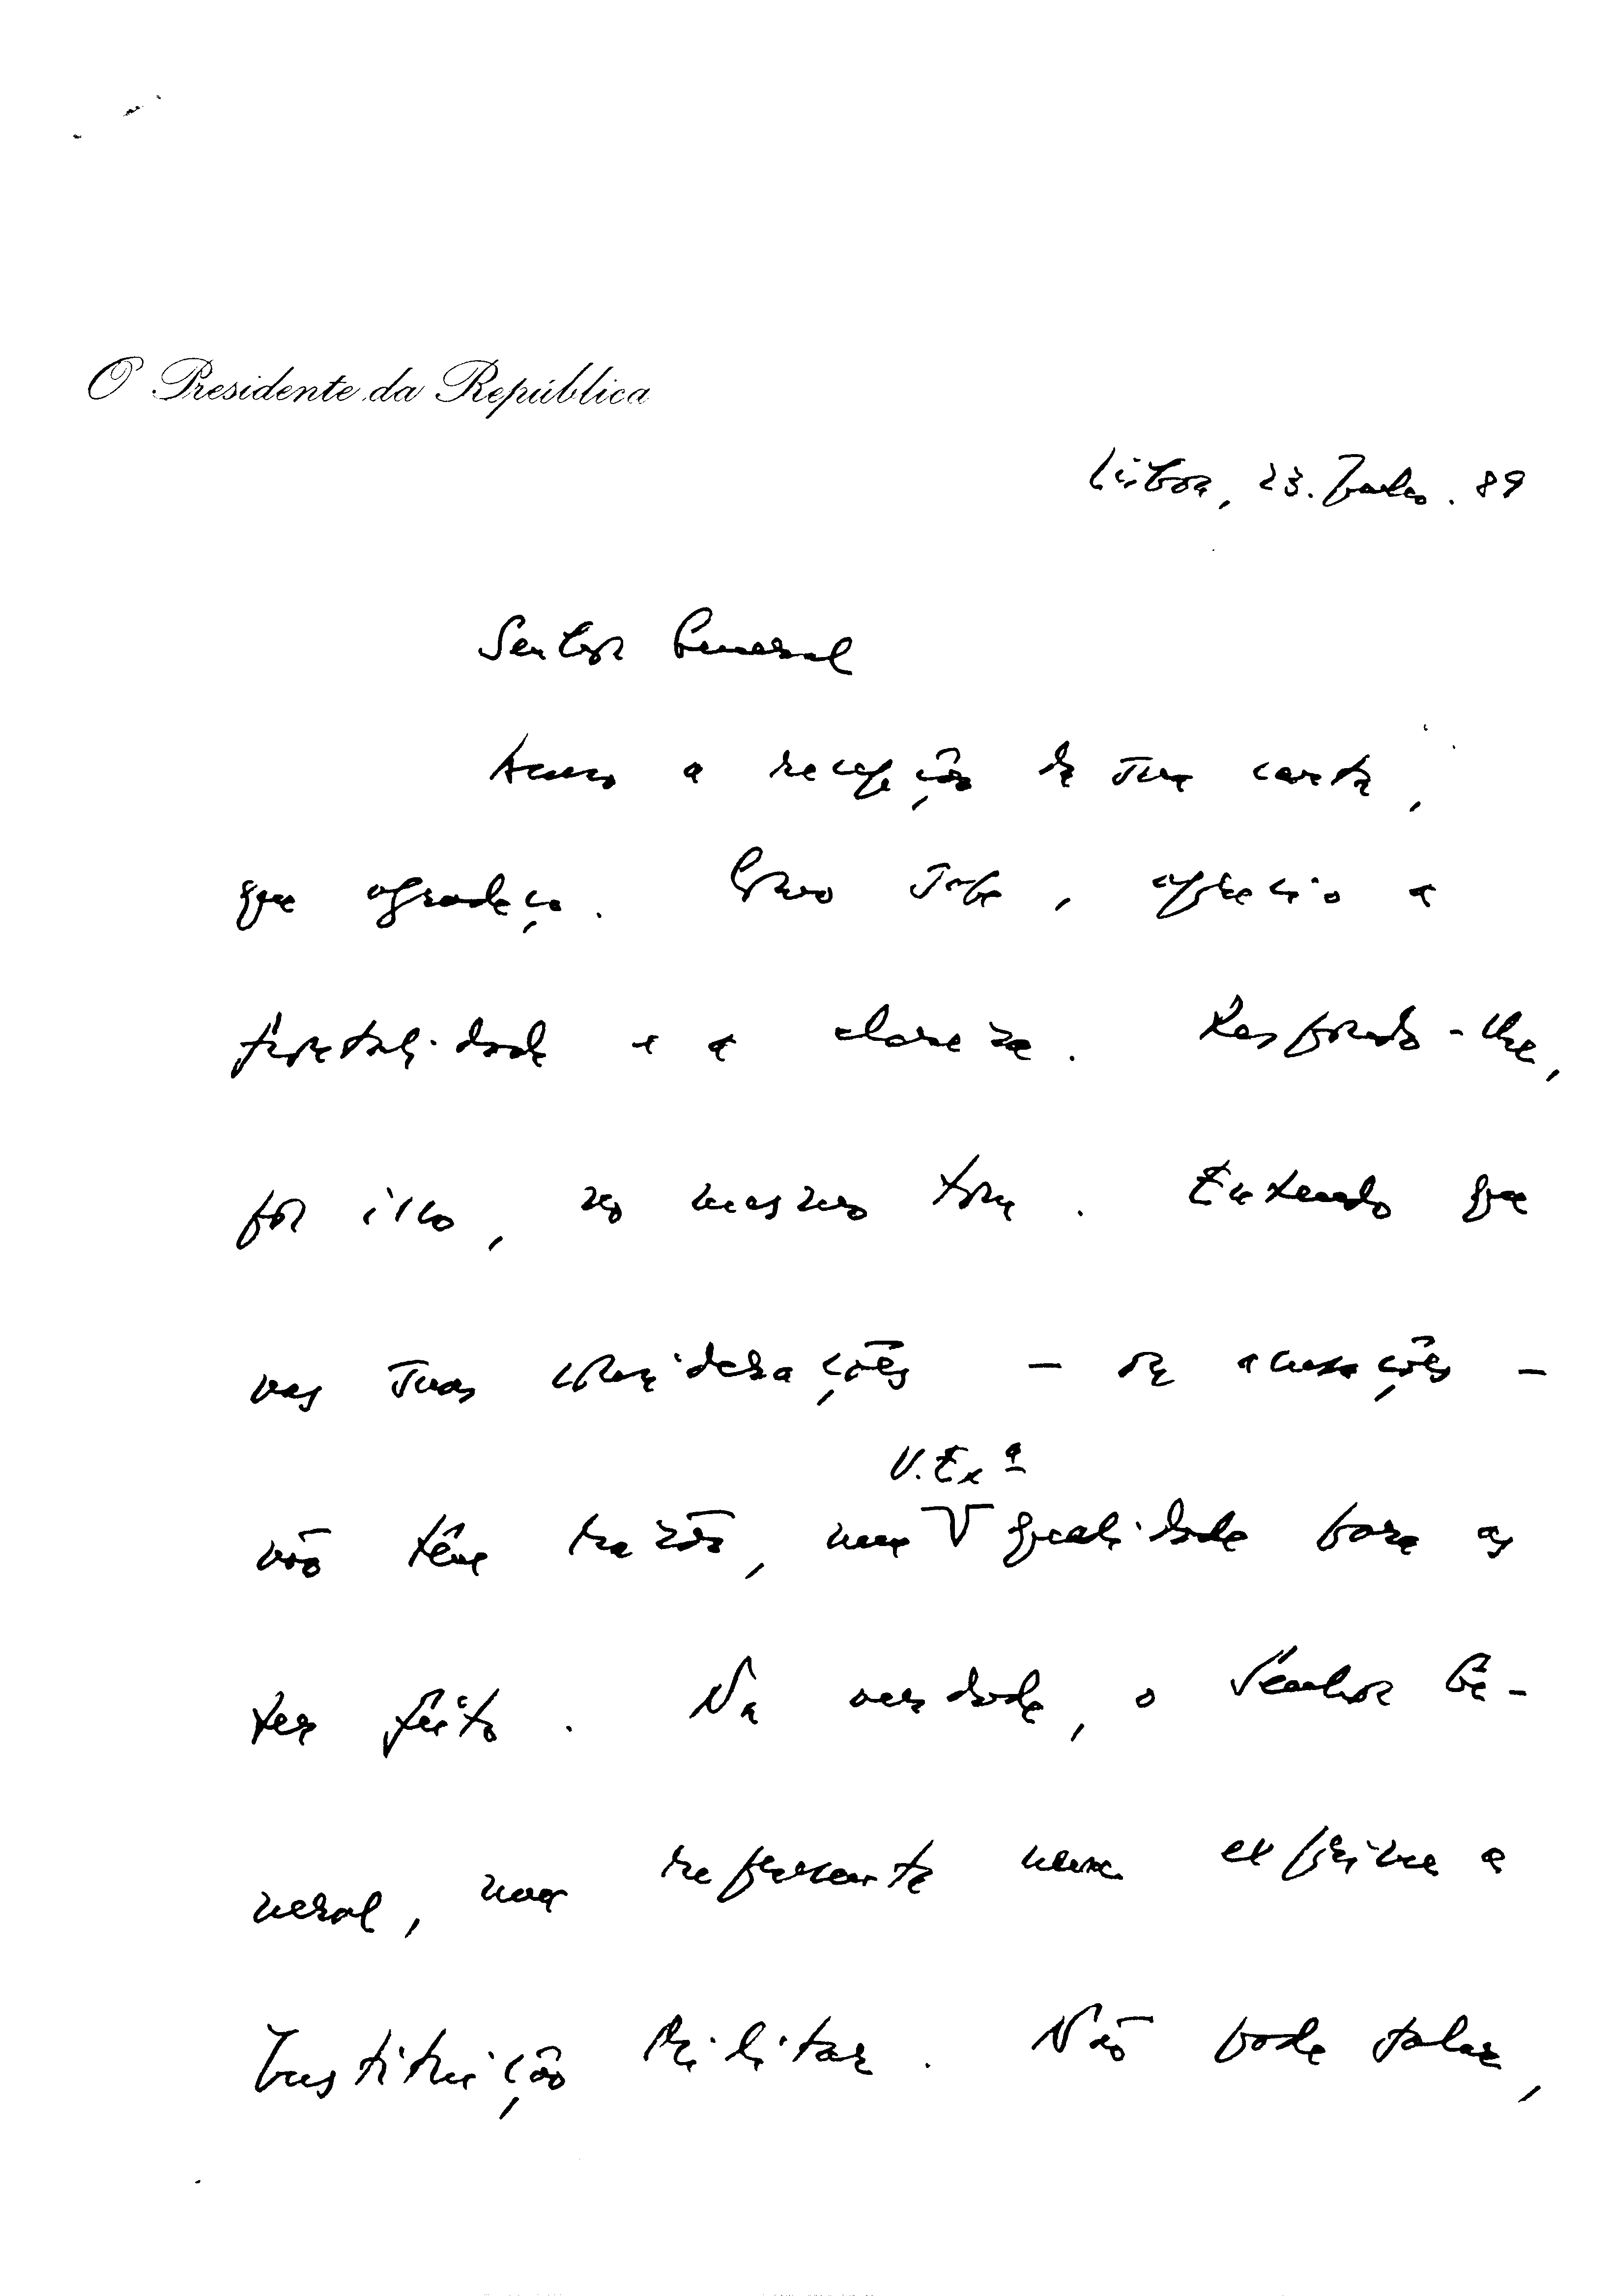 O Presidente da República
Lisboa, 23. Junho. 89
Senhor General
Acuso a recepção da sua carta,
que agradeço. Como sabe, aprecio a
frontalidade e a clareza. Respondo-lhe,
por isso, no mesmo tom. Entendo que
nas suas considerações - ou acusações -
V. Exª
não têm razão, nem V qualidade para as
ter feito. Na verdade, o Senhor Ge-
neral, não representa nem exprime a
Instituição Militar. Não pode falar,